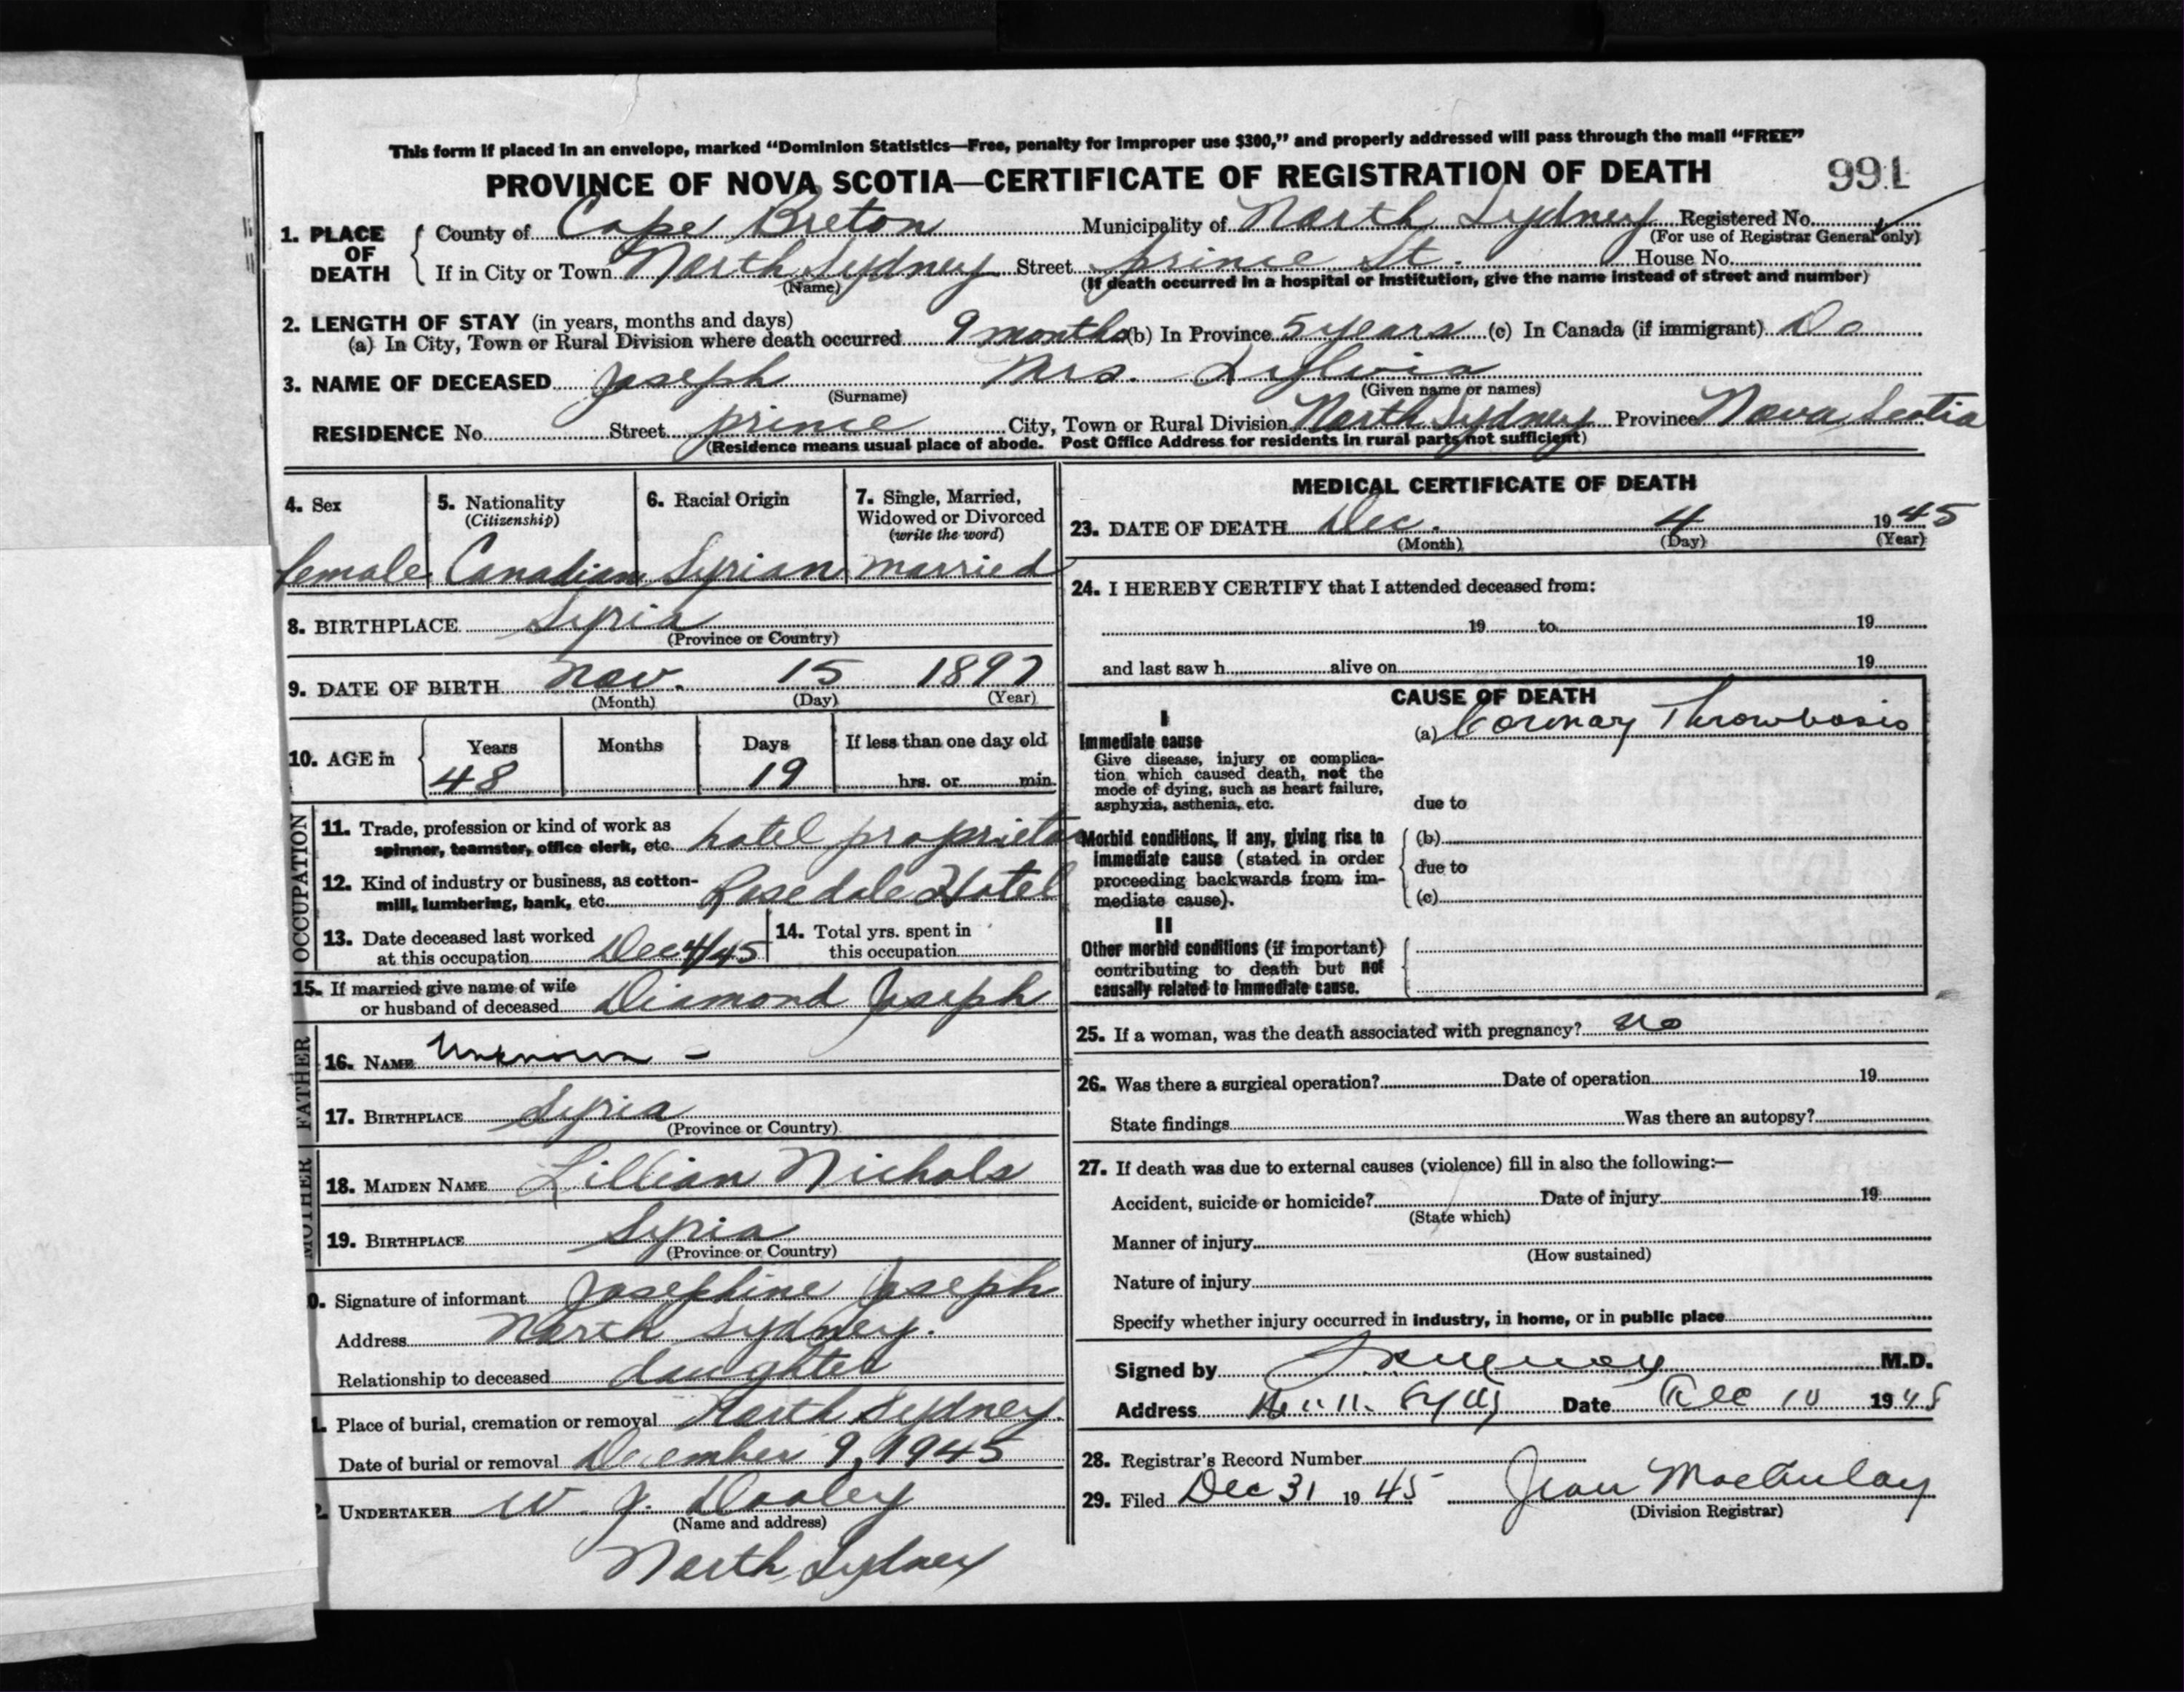 This form if placed in an envelope, marked "Dominion Statistics—Free, penalty for improper use $300," and properly addressed will pass through the mail "FREE"
PROVINCE OF NOVA SCOTIA—CERTIFICATE OF REGISTRATION OF DEATH 991
1. PLACE OF DEATH County of Cape Breton Municipality of North Sydney Registered No.
(For use of Registrar General only)
If in City or Town North Sydney Street prince St. House No.
(Name) (If death occurred in a hospital or institution, give the name instead of street and number)
2. LENGTH OF STAY (in years, months and days)
(a) In City, Town or Rural Division where death occurred 9 months (b) In Province 5 years (c) In Canada (if immigrant) Do
3. NAME OF DECEASED Joseph Mrs. Sylvia
(Surname) (Given name or names)
RESIDENCE No. Street prince City, Town or Rural Division North Sydney Province Nova Scotia
(Residence means usual place of abode. Post Office Address for residents in rural parts not sufficient)
4. Sex
female
5. Nationality
(Citizenship)
Canadian
6. Racial Origin
Syrian
7. Single, Married,
Widowed or Divorced
(write the word)
married
8. BIRTHPLACE Syria
(Province or Country)
9. DATE OF BIRTH Nov. 15 1897
(Month) (Day) (Year)
10. AGE in Years Months Days If less than one day old
48 19 hrs. or min.
OCCUPATION
11. Trade, profession or kind of work as
spinner, teamster, office clerk, etc. hotel proprietor
12. Kind of industry or business, as cotton-
mill, lumbering, bank, etc. Rosedale Hotel
13. Date deceased last worked
at this occupation Dec 4/45
14. Total yrs. spent in
this occupation
15. If married give name of wife
or husband of deceased Diamond Joseph
FATHER
16. NAME Unknown -
17. BIRTHPLACE Syria
(Province or Country)
MOTHER
18. MAIDEN NAME Lillian Nichols
19. BIRTHPLACE Syria
(Province or Country)
0. Signature of informant Josephine Joseph
Address North Sydney.
Relationship to deceased daughter
1. Place of burial, cremation or removal North Sydney.
Date of burial or removal December 9, 1945
2. UNDERTAKER W. J. Dooley
(Name and address)
North Sydney
MEDICAL CERTIFICATE OF DEATH
23. DATE OF DEATH Dec. 4 1945
(Month) (Day) (Year)
24. I HEREBY CERTIFY that I attended deceased from:
19 to 19
and last saw h alive on 19
CAUSE OF DEATH
I
Immediate cause
Give disease, injury or complica-
tion which caused death, not the
mode of dying, such as heart failure,
asphyxia, asthenia, etc.
(a) Coronary Thrombosis
due to
Morbid conditions, if any, giving rise to
immediate cause (stated in order
proceeding backwards from im-
mediate cause).
(b)
due to
(c)
II
Other morbid conditions (if important)
contributing to death but not
causally related to immediate cause.
25. If a woman, was the death associated with pregnancy? no
26. Was there a surgical operation? Date of operation 19
State findings Was there an autopsy?
27. If death was due to external causes (violence) fill in also the following:—
Accident, suicide or homicide? Date of injury 19
(State which)
Manner of injury
(How sustained)
Nature of injury
Specify whether injury occurred in industry, in home, or in public place
Signed by M.D.
Address Date Dec 10 1945
28. Registrar's Record Number
29. Filed Dec 31 1945 Jean MacAulay
(Division Registrar)